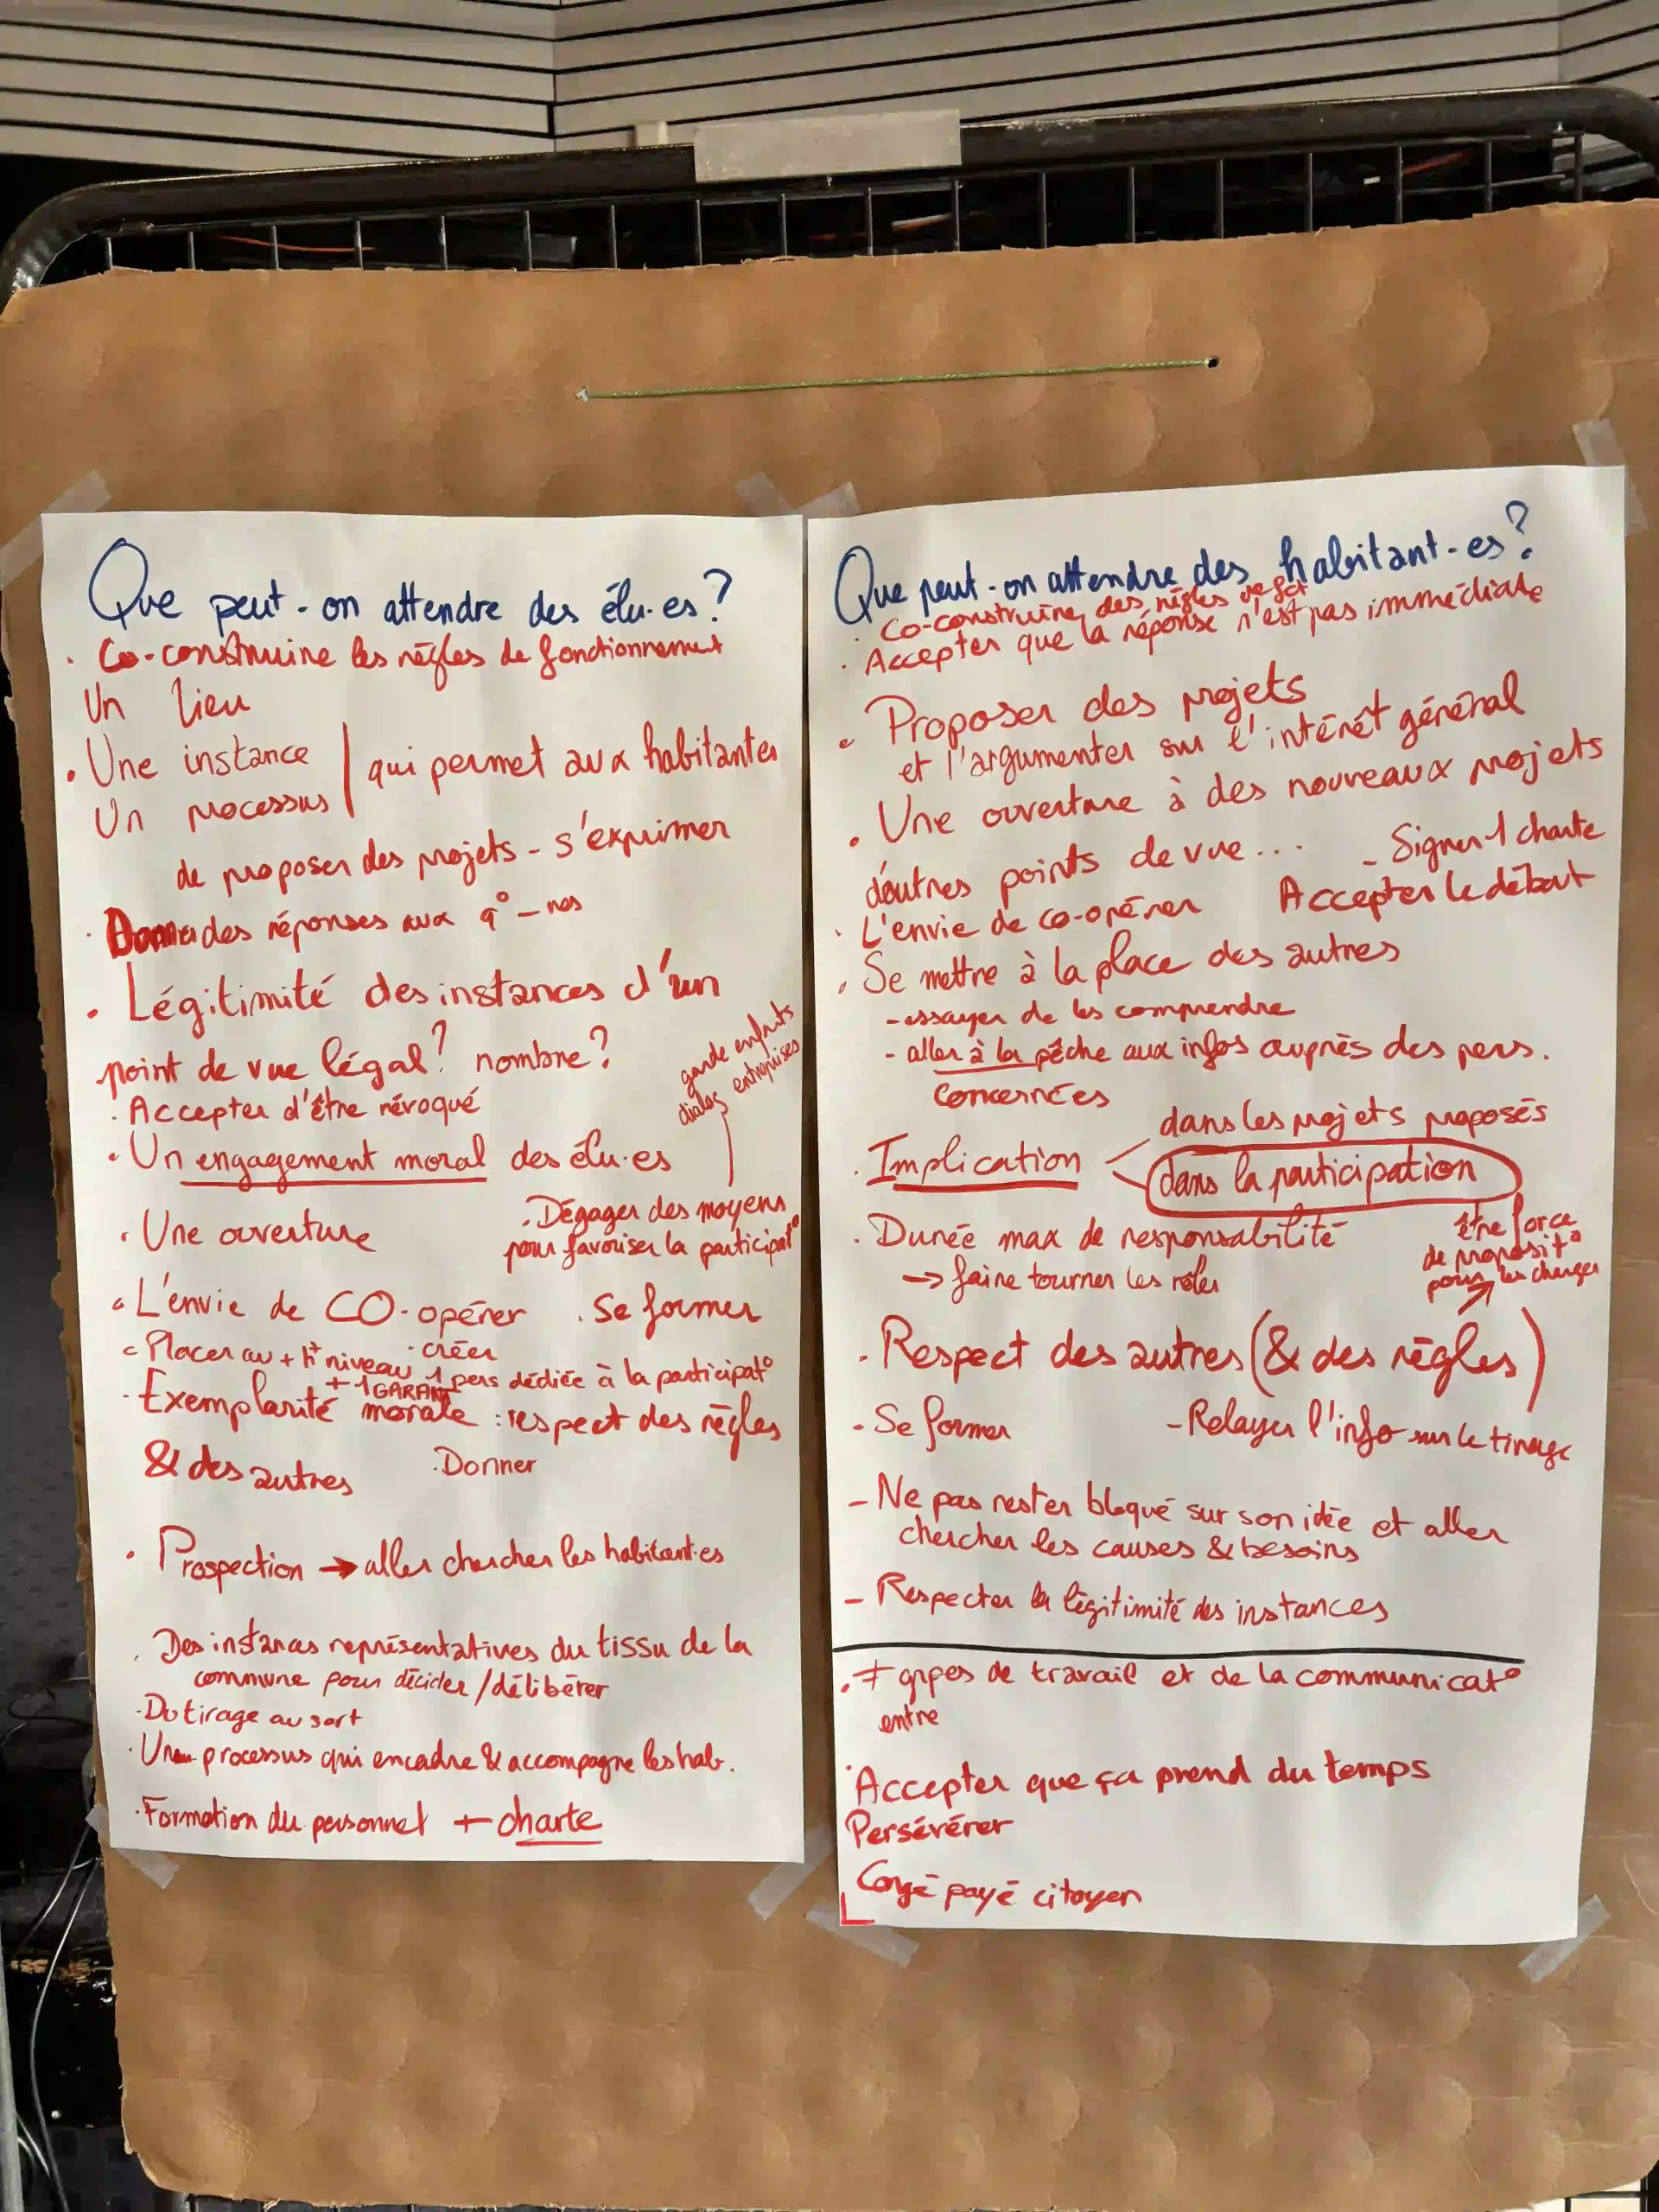 Que peut-on attendre des élu.es ?
. Co-construire les règles de fonctionnement
Un lieu
. Une instance
Un processus
qui permet aux habitantes
de proposer des projets - s'exprimer
. Donner des réponses aux q° - nos
. Légitimité des instances d'un
point de vue légal ? nombre ?
. Accepter d'être révoqué
garde enfants
dialog entreprises
. Un engagement moral des élu.es
. Une ouverture
. Dégager des moyens
pour favoriser la participat°
. L'envie de CO-opérer . Se former
. Placer au + ht niveau . créer
1 pers dédiée à la participat°
+ 1 GARANT
. Exemplarité morale : respect des règles
& des autres . Donner
. Prospection → aller chercher les habitant.es
. Des instances représentatives du tissu de la
commune pour décider / délibérer
. Du tirage au sort
. Un processus qui encadre & accompagne les hab.
. Formation du personnel + charte
Que peut-on attendre des habitant-es ?
. Co-construire des règles de fct
. Accepter que la réponse n'est pas immédiate
. Proposer des projets
et l'argumenter sur l'intérêt général
. Une ouverture à des nouveaux projets
d'autres points de vue...
- Signer 1 charte
. L'envie de co-opérer
Accepter le débat
. Se mettre à la place des autres
- essayer de les comprendre
- aller à la pêche aux infos auprès des pers.
concernées
. Implication
dans les projets proposés
dans la participation
. Durée max de responsabilité
→ faire tourner les rôles
être force
de proposit°
pour les changer
. Respect des autres (& des règles)
- Se former - Relayer l'info sur le tirage
- Ne pas rester bloqué sur son idée et aller
chercher les causes & besoins
- Respecter la légitimité des instances
. ≠ grpes de travail et de la communicat°
entre
. Accepter que ça prend du temps
Persévérer
Congé payé citoyen